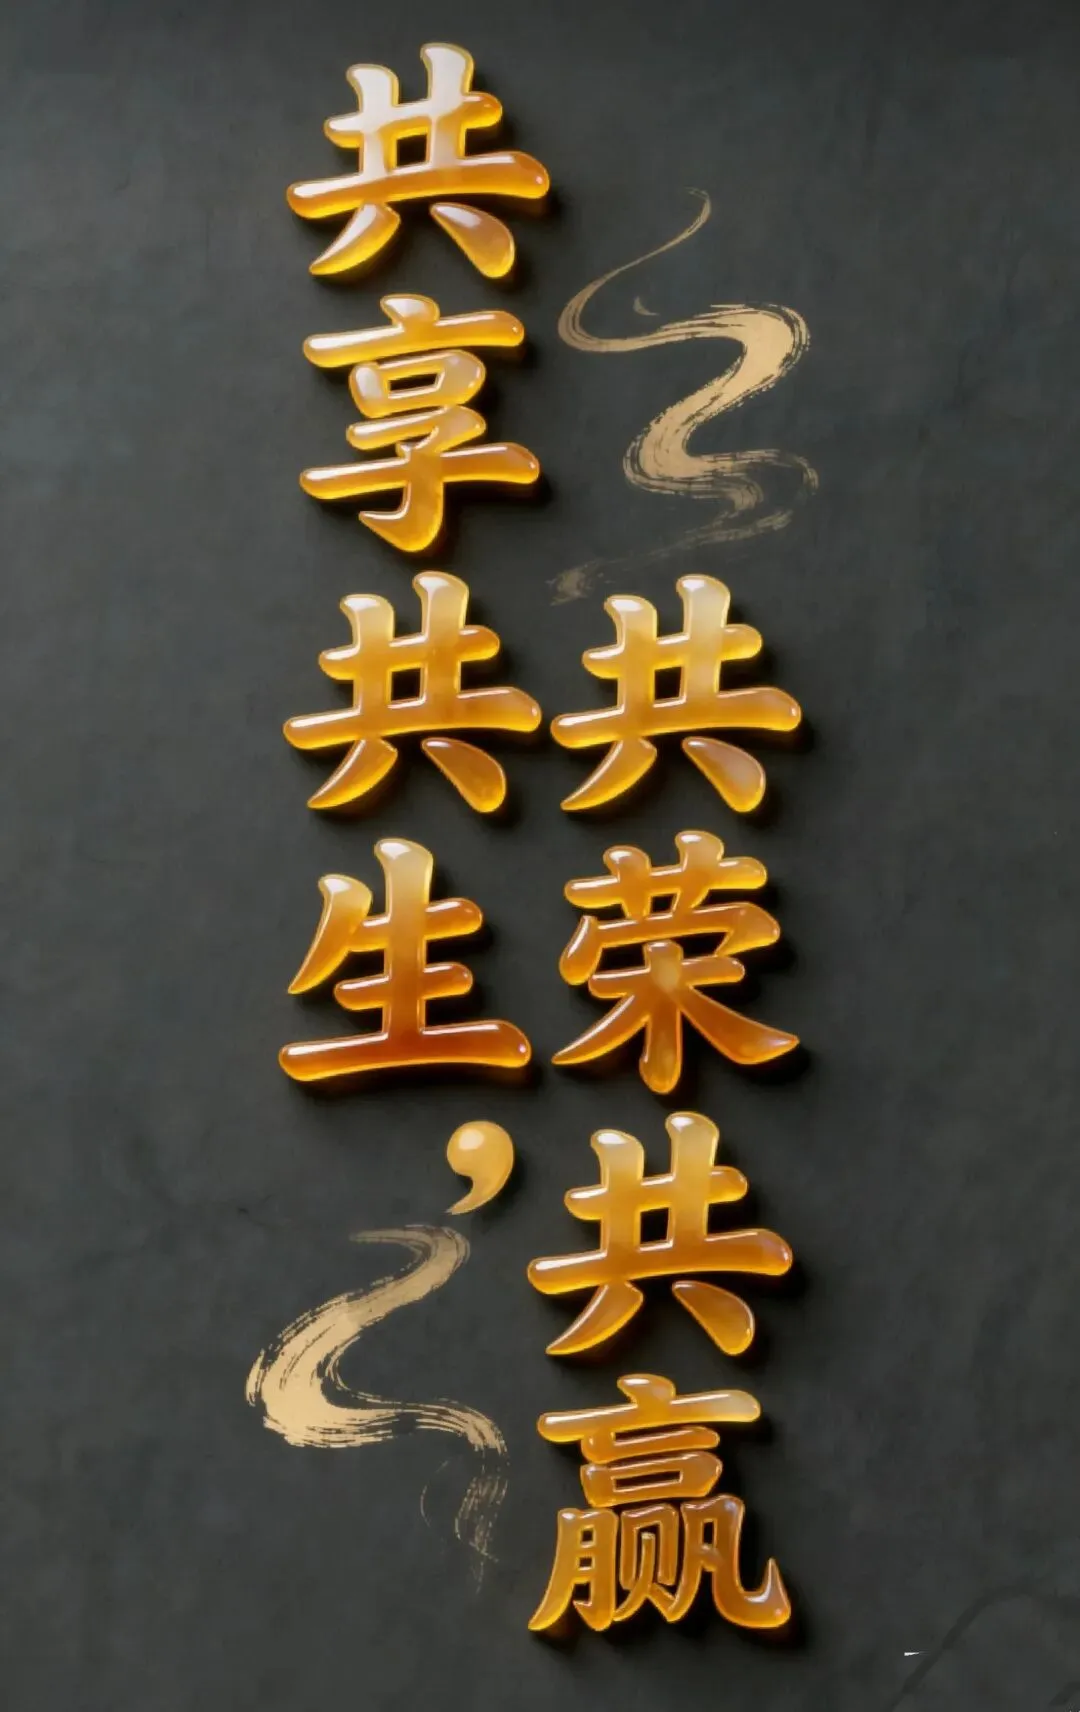 共享共生，
共荣共赢